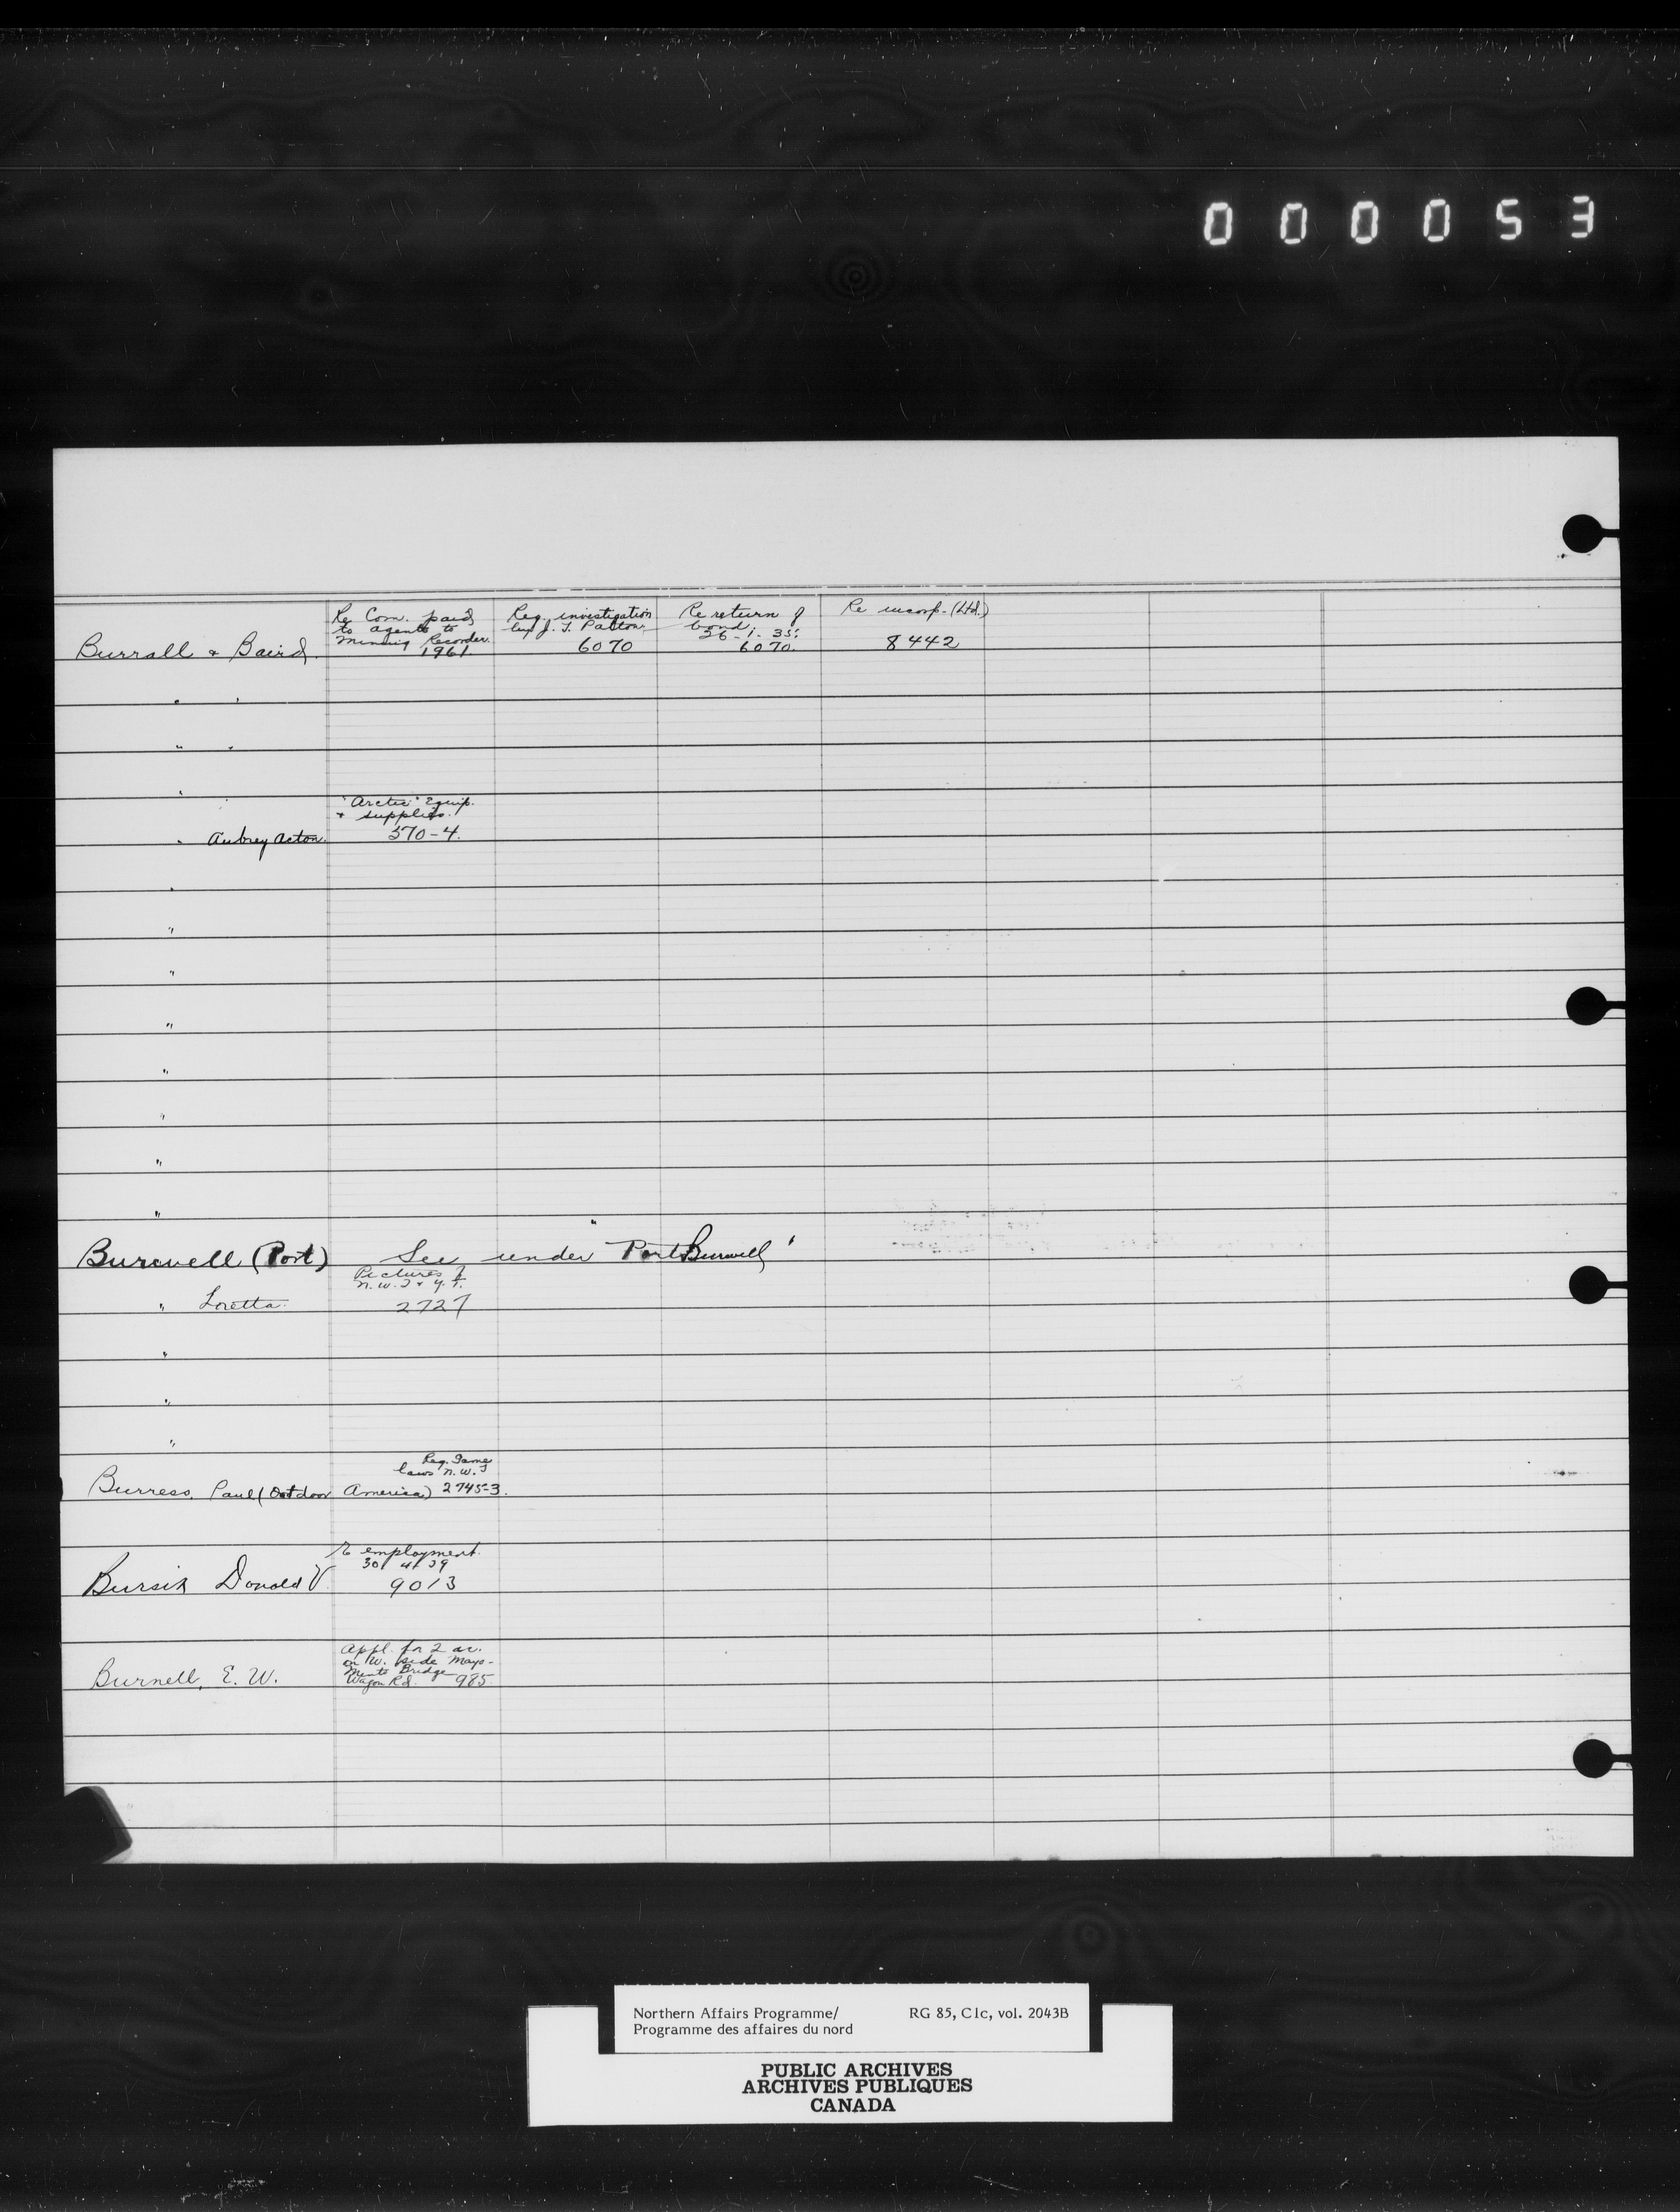 000053
Re Com. paid
to agents to
Mining Recorder.
Burrall & Baird. 1961
Reg. investigation
by J. T. Patton.
6070
Re return of
bond.
26-1-35.
6070.
Re incorp. (Ltd.)
8442
" "
" "
"
"Arctic" Equip.
& supplies.
" Aubrey Acton. 570-4.
"
"
"
"
"
"
"
"
Burwell (Port) See under "Port Burwell"
Pictures of
N.W.T & Y.T.
" Loretta. 2727
"
"
"
Reg. Game
laws N.W.T
Burress, Paul (Outdoor America) 2745-3.
Re employment.
30/4/39
Bursik Donald V. 9013
Appl. for 2 ac.
on W. side Mayo-
Minto Bridge
Burnell, E. W. Wagon Rd. 985
Northern Affairs Programme/ RG 85, C1c, vol. 2043B
Programme des affaires du nord
PUBLIC ARCHIVES
ARCHIVES PUBLIQUES
CANADA